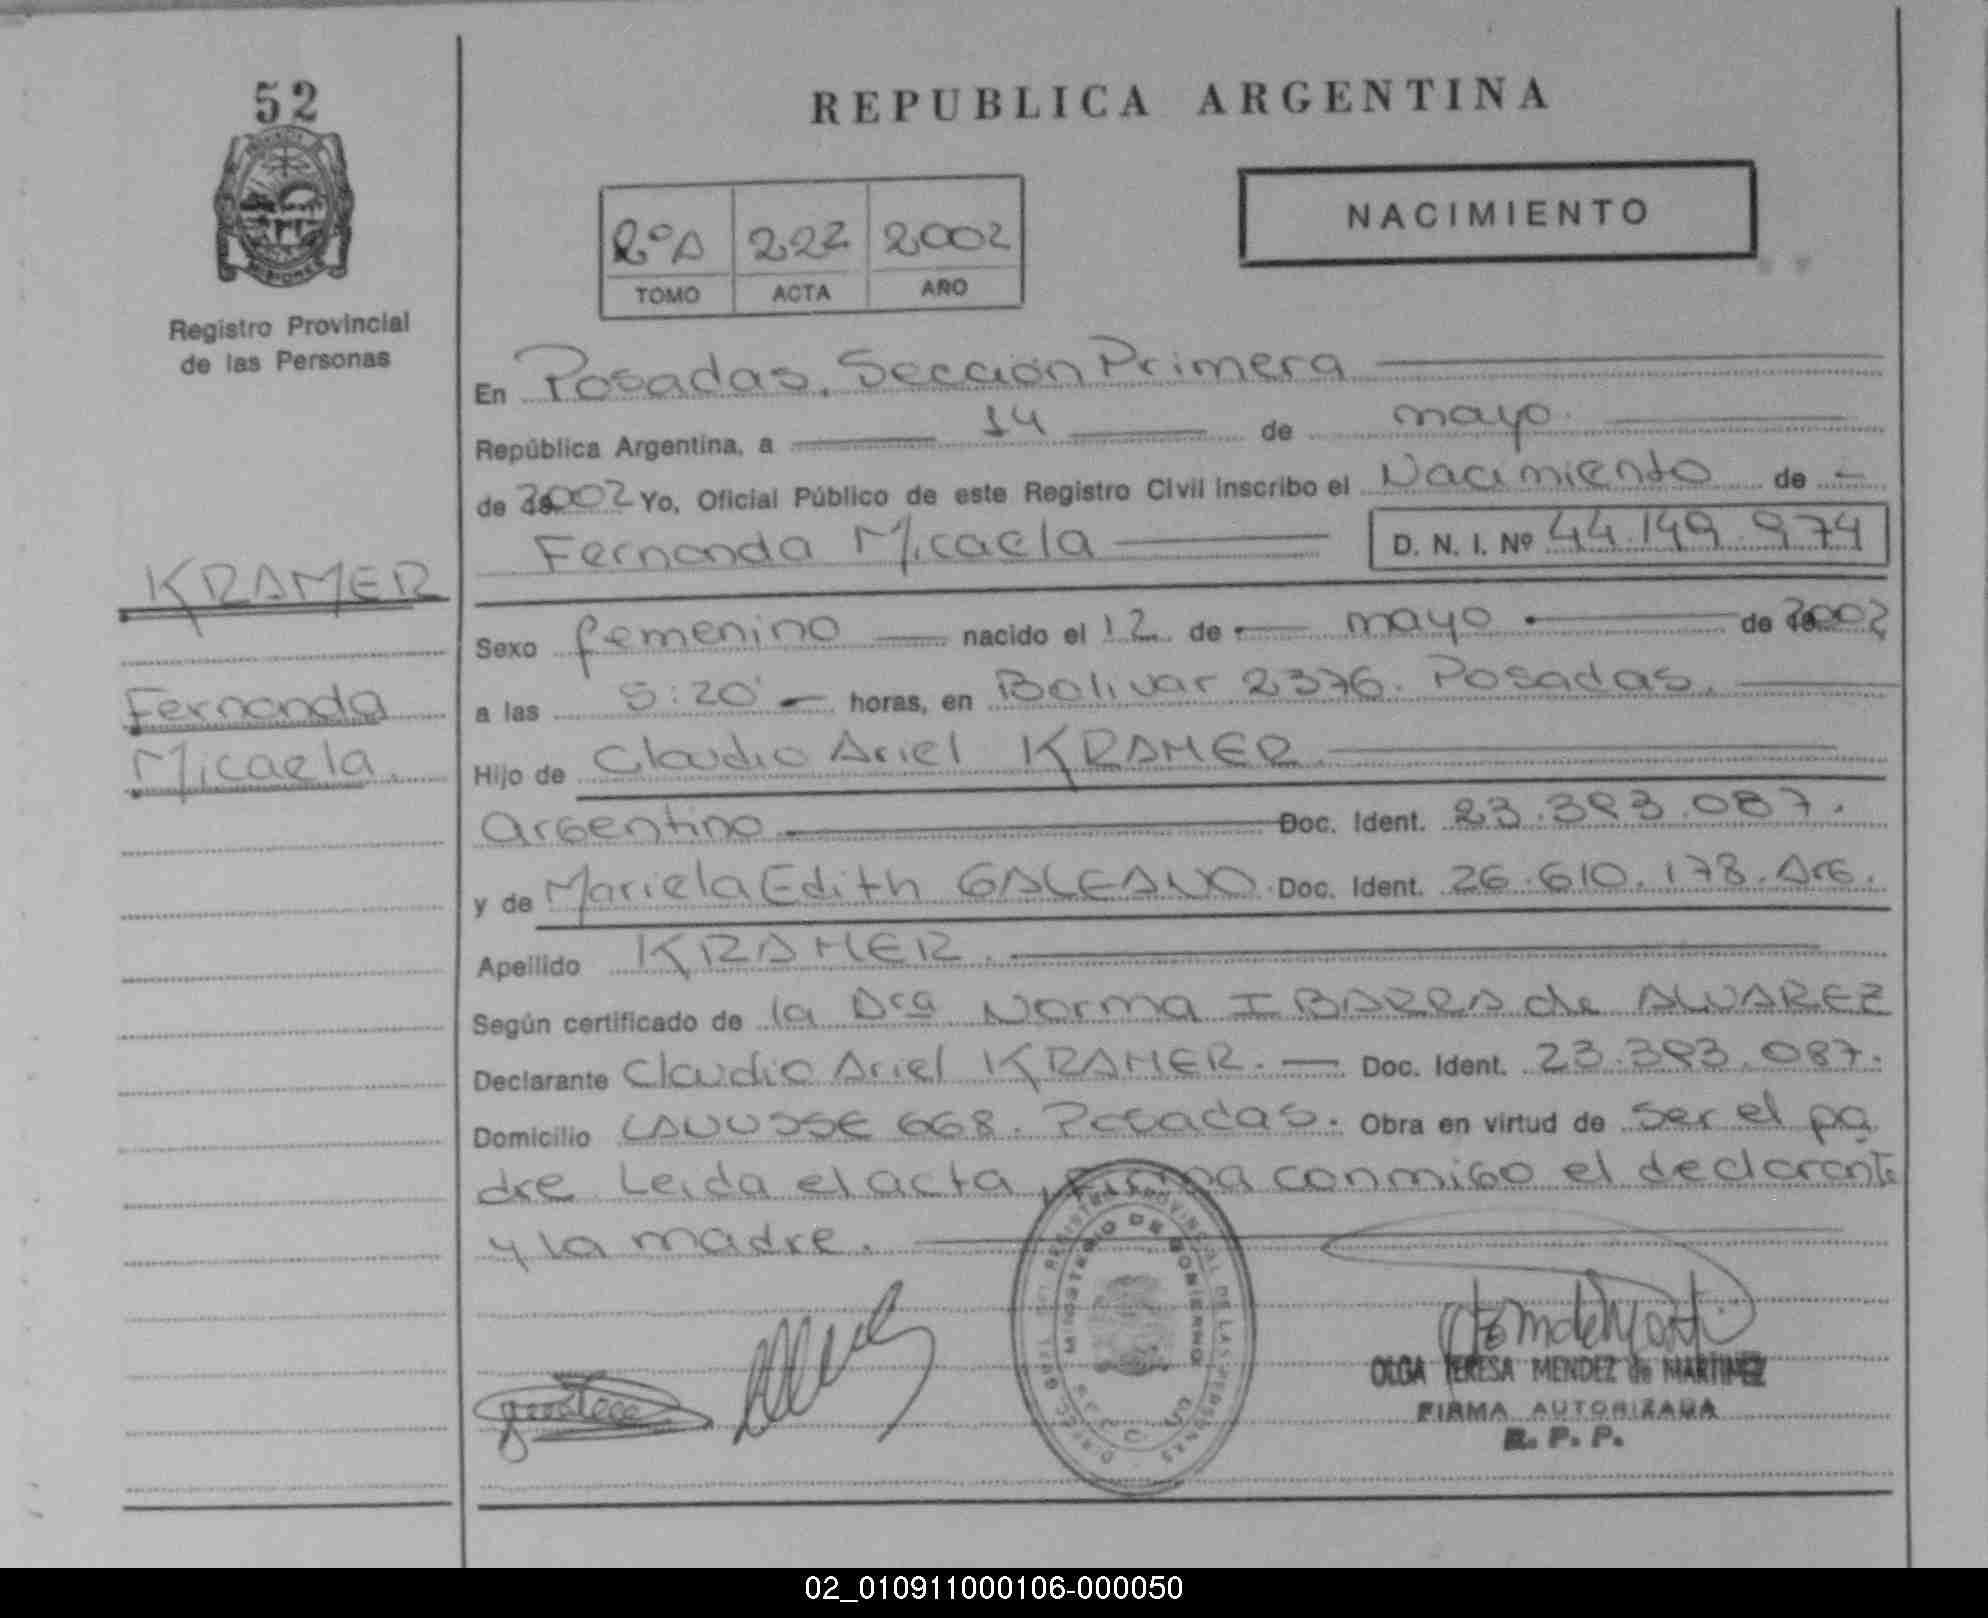 52
MISIONES
Registro Provincial
de las Personas
KRAMER
Fernanda
Micaela.
REPUBLICA ARGENTINA
2º A 222 2002
TOMO ACTA AÑO
NACIMIENTO
En Posadas. Sección Primera
República Argentina, a 14 de mayo.
de 2002 Yo, Oficial Público de este Registro Civil inscribo el Nacimiento de
Fernanda Micaela D. N. I. Nº 44.149.974
Sexo femenino nacido el 12 de mayo de 2002
a las 5:20' horas, en Bolivar 2376. Posadas.
Hijo de Claudio Ariel KRAMER.
argentino Doc. Ident. 23.383.087.
y de Mariela Edith GALEANO. Doc. Ident. 26.610.178. Arg.
Apellido KRAMER.
Según certificado de la Dra Norma IBARRA de ALVAREZ
Declarante Claudio Ariel KRAMER. Doc. Ident. 23.383.087.
Domicilio LANUSSE 668. Posadas. Obra en virtud de ser el pa
dre Leida el acta, firma conmigo el declarante
y la madre.
REGISTRO PROVINCIAL DE LAS PERSONAS
MINISTERIO DE GOBIERNO
OLGA TERESA MENDEZ de MARTINEZ
FIRMA AUTORIZADA
R. P. P.
02_010911000106-000050